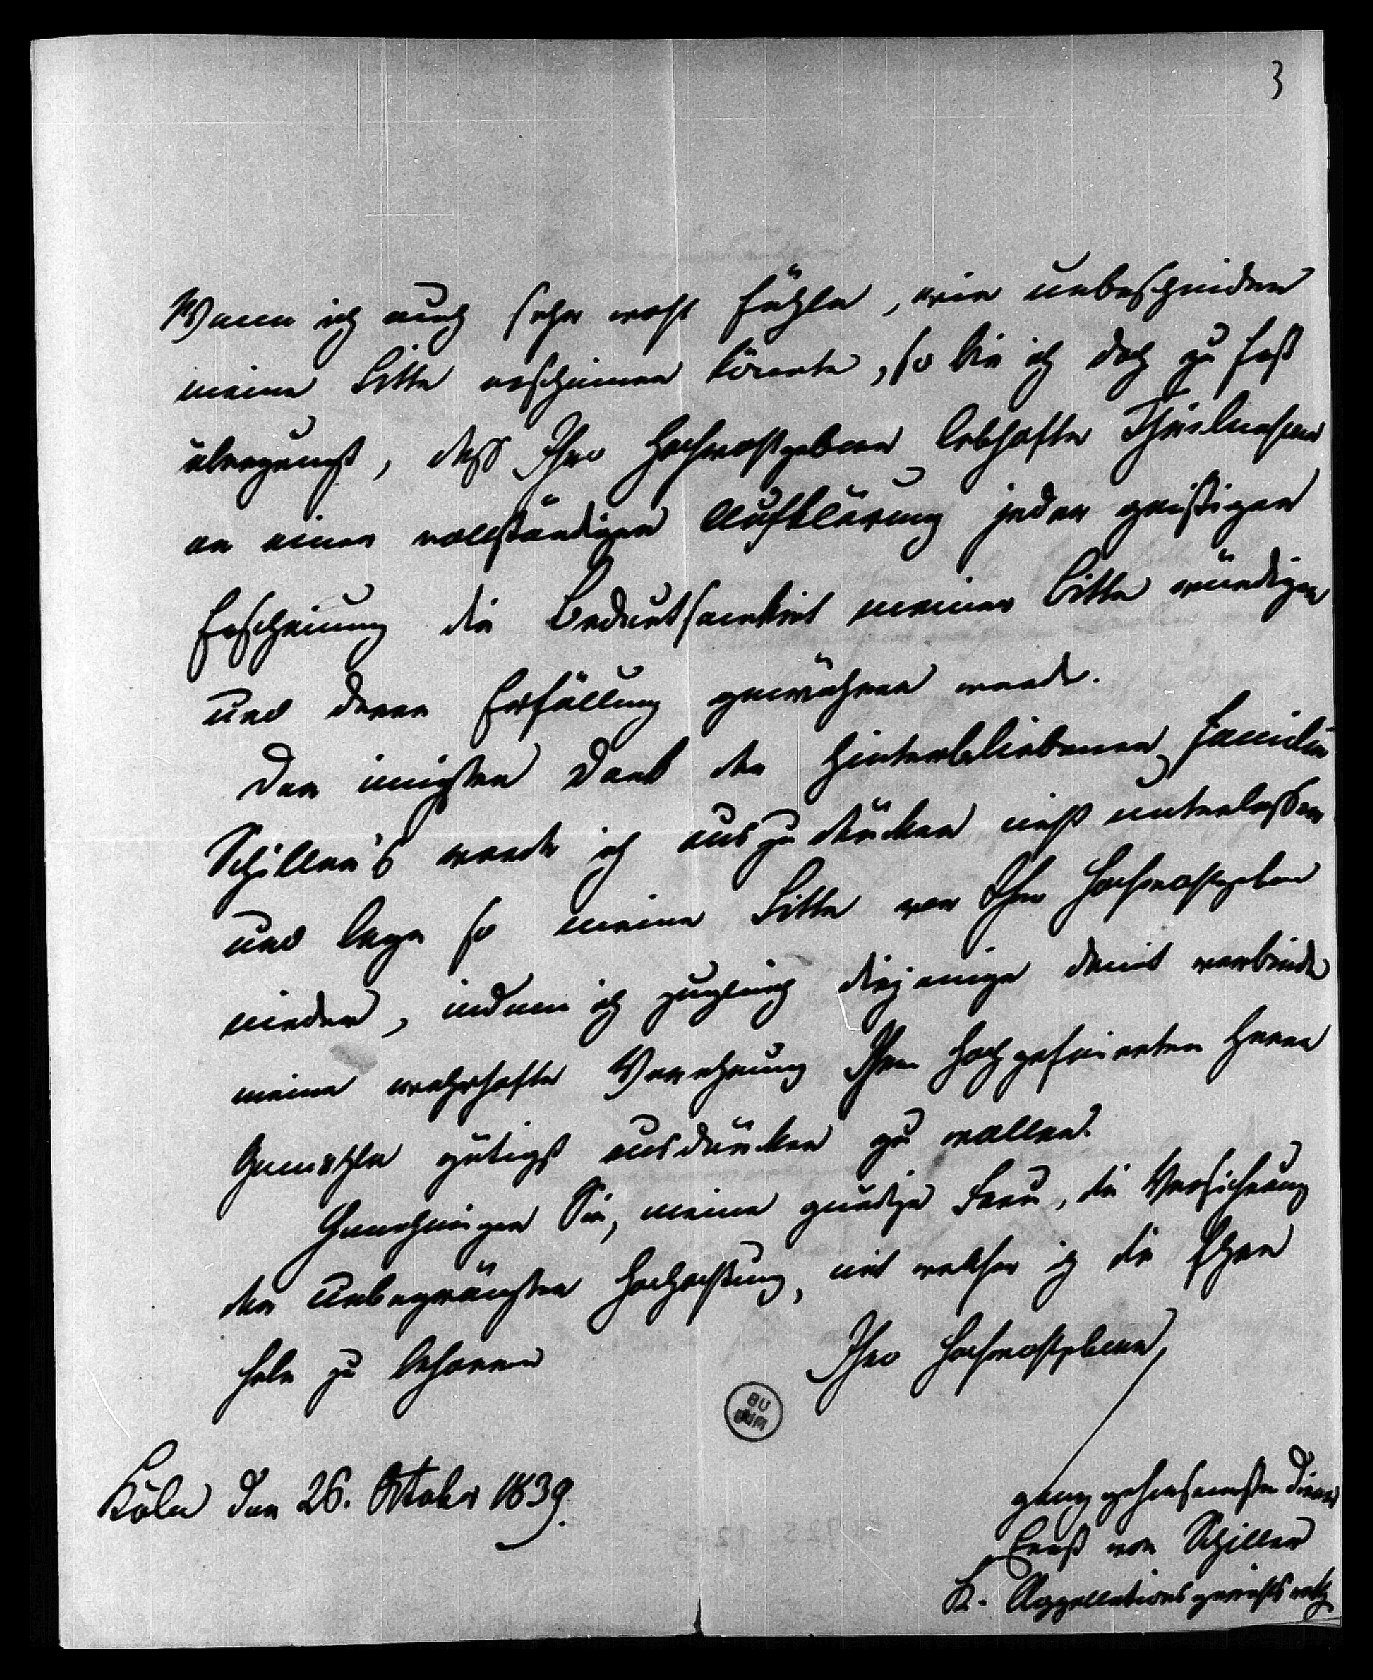 3
Wenn ich auch sehr wohl fühle, wie unbescheiden
meine Bitte erscheinen könnte, so bin ich doch zu fest
überzeugt, dass Ihro Hochwohlgeboren lebhafte Theilnahme
an einer vollständigen Aufklärung jeder geistigen
Erscheinung die Bedeutsamkeit meiner Bitte würdigen
und deren Erfüllung gewähren werde.
Den innigsten Dank der hinterbliebenen Familie
Schiller's werde ich auszudrücken nicht unterlassen
und lege so meine Bitte vor Ihro Hochwohlgeboren
nieder, indem ich zugleich diejenige damit verbinde
meine wahrhafte Verehrung Ihrem hochgefeierten Herrn
Gemahle gütigst ausdrücken zu wollen.
Genehmigen Sie, meine gnädige Frau, die Versicherung
der unbegränzten Hochachtung, mit welcher ich die Ehre
habe zu beharren
Ihro Hochwohlgeboren,
Köln den 26. Oktober 1839.
ganz gehorsamster Diener
Ernst von Schiller
K. Appellationsgerichtsrath